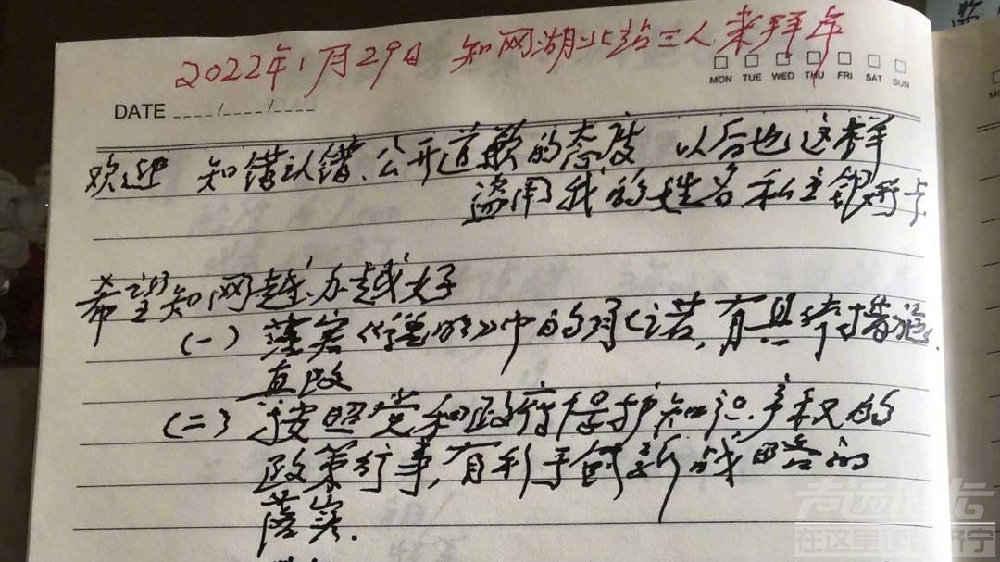 2022年1月29日 知网湖北站三人来拜年
MON TUE WED THU FRI SAT SUN
DATE
欢迎 知错认错、公开道歉的态度 以后也这样
盗用我的姓名私立银行卡
希望知网越办越好
(一) 落实《说明》中的承诺,有具体措施.
直改
(二) 按照党和政府维护知识产权的
政策行事,有利于创新战略的
落实.
在这里读懂济宁